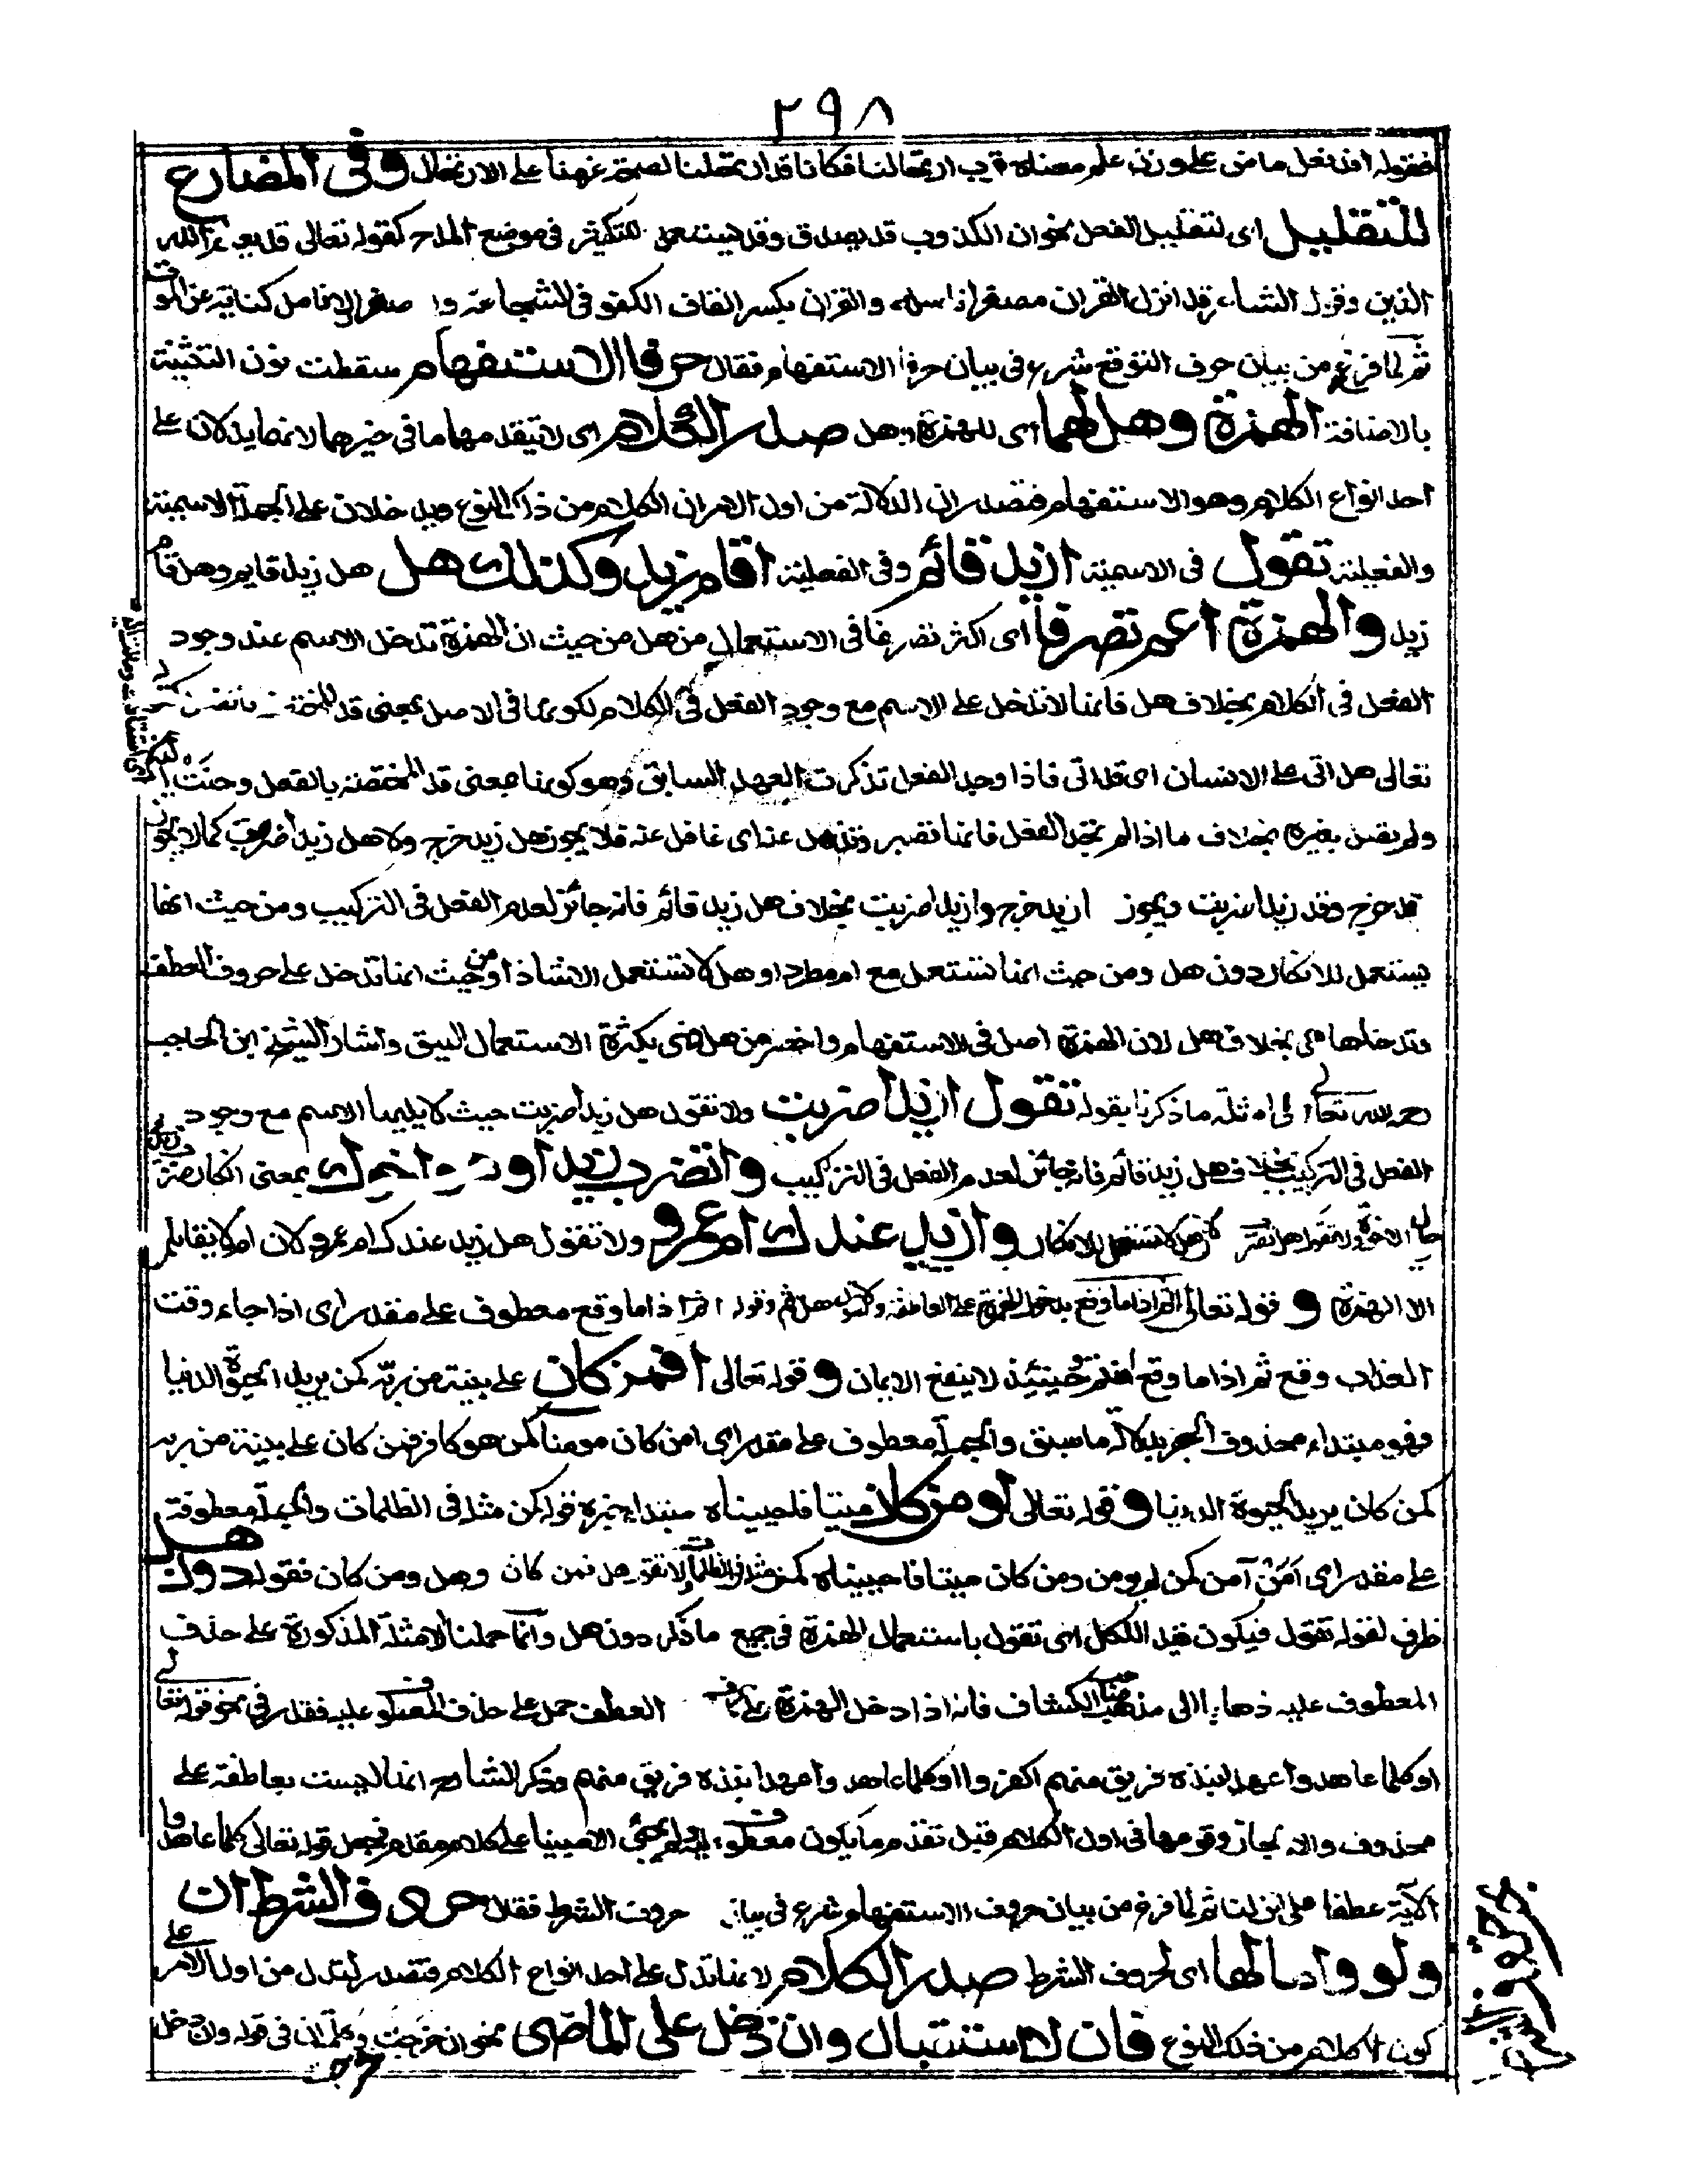 ٢٩٨
فقوله افد فعل ماض على وزن علم معناه قرب ارتحالنا فكانا قد ارتحلنا لصحة عزمنا على الارتحال وفى المضارع
للتقليل اى لتقليل الفعل نحو ان الكذوب قد يصدق وقد يستعمل للتكثير فى موضع المدح كقوله تعالى قد يعلم الله
الذين وقول الشاعر قد انزل القران مصفرا انامله والقران بكسر القاف الكفو فى الشجاعة و صفر الانامل كناية عن الموت
ثم لما فرغ من بيان حرف التوقع شرع فى بيان حرفا الاستفهام فقال حرفا الاستفهام سقطت نون التثنية
بالاضافة الهمزة وهل لهما اى للهمزة وهل صدر الكلام اى لا يتقدمهما ما فى حيزهما لانهما يدلان على
احد انواع الكلام وهو الاستفهام فتصدران الدلالة من اول الامر ان الكلام من ذاك النوع ويدخلان على الجملة الاسمية
والفعلية تقول فى الاسمية ازيد قائم وفى الفعلية اقام زيد وكذلك هل هل زيد قايم وهل قام
زيد والهمزة اعم تصرفا اى اكثر تصرفا فى الاستعمال من هل من حيث ان الهمزة تدخل الاسم عند وجود
الفعل فى الكلام بخلاف هل فانها لا تدخل على الاسم مع وجود الفعل فى الكلام لكونها فى الاصل بمعنى قد المختصة
تعالى هل اتى على الانسان اى قد اتى فاذا وجد الفعل تذكرت العهد السابق وهو كونها بمعنى قد المختصة بالفعل وحنت اليه
ولم يقض بغيره بخلاف ما اذا لم تجد الفعل فانها تصبر وتذهل عنه اى غافل عنه فلا يجوز هل زيد خرج ولا هل زيدا ضربت كما لا يجوز
قد خرج وقد زيدا ضربت ويجوز ازيد خرج وازيدا ضربت بخلاف هل زيد قائم فانه جائز لعدم الفعل فى التركيب ومن حيث انها
يستعمل للانكار دون هل ومن حيث انها تستعمل مع ام مطردا وهل لا تستعمل الا شاذا ومن حيث انها تدخل على حروف العطف
وتدخلها هى بخلاف هل لان الهمزة اصل فى الاستفهام واخصر من هل فهى بكثرة الاستعمال اليق واشار الشيخ ابن الحاجب
رحمه الله تعالى الى امثلة ما ذكرنا بقوله تقول ازيدا ضربت ولا تقول هل زيدا ضربت حيث لا يليها الاسم مع وجود
الفعل فى التركيب بخلاف هل زيد قائم فانه جائز لعدم الفعل فى التركيب واتضرب زيدا وهو اخوك بمعنى انكار ضرب زيد
حال الاخوة ولا تقول هل تضرب لان هل لا تستعمل للانكار وازيد عندك ام عمرو ولا تقول هل زيد عندك ام عمرو لان ام لا يقابلها
الا الهمزة و قوله تعالى اثم اذا ما وقع بدخول الهمزة على العاطفة ولا تقول هل ثم وقوله اثم اذا ما وقع معطوف على مقدر اى اذا جاء وقت
العذاب وقع ثم اذا ما وقع امنتم حينئذ لا ينفع الايمان و قوله تعالى افمن كان على بينة من ربه كمن يريد الحيوة الدنيا
فهو مبتداء محذوف الخبر بدلالة ما سبق والجملة معطوف على مقدر اى امن كان مومنا كمن هو كافر فمن كان على بينة من ربه
كمن كان يريد الحيوة الدنيا و قوله تعالى اومن كان ميتا فاحييناه مبتداء خبره قوله كمن مثله فى الظلمات والجملة معطوفة
على مقدر اى امن آمن كمن لم يومن ومن كان ميتا فاحييناه كمن مثله فى الظلمات لا تقول هل فمن كان وهل ومن كان فقوله دون هل
ظرف لقوله تقول فيكون قيد اللكل اى تقول باستعمال الهمزة فى جميع ما ذكر دون هل وانما حملنا الامثلة المذكورة على حذف
المعطوف عليه ذهابا الى مذهب صاحب الكشاف فانه اذا دخل الهمزة على حرف العطف حمل على حذف المعطوف عليه فقدر فى نحو قوله تعالى
او كلما عاهدوا عهدا نبذه فريق منهم اكفروا او كلما عاهدوا عهدا نبذه فريق منهم وذكر الشارح انها ليست بعاطفة على
محذوف والا لجاز وقوعها فى اول الكلام قبل تقدم ما يكون معطوفا عليه ولم يجئ الا مبنيا على كلام مقدم فجعل قوله تعالى كلما عاهدوا
الآية عطفا على انزلنا ثم لما فرغ من بيان حروف الاستفهام شرع فى بيان حروف الشرط فقال حروف الشرط ان
ولو واما لها اى لحروف الشرط صدر الكلام لانها تدل على احد انواع الكلام فتصدر لتدل من اول الامر على
كون الكلام من ذلك النوع فان للاستقبال وان دخل على الماضى نحو ان خرجت وكلمة ان فى قوله وان دخل